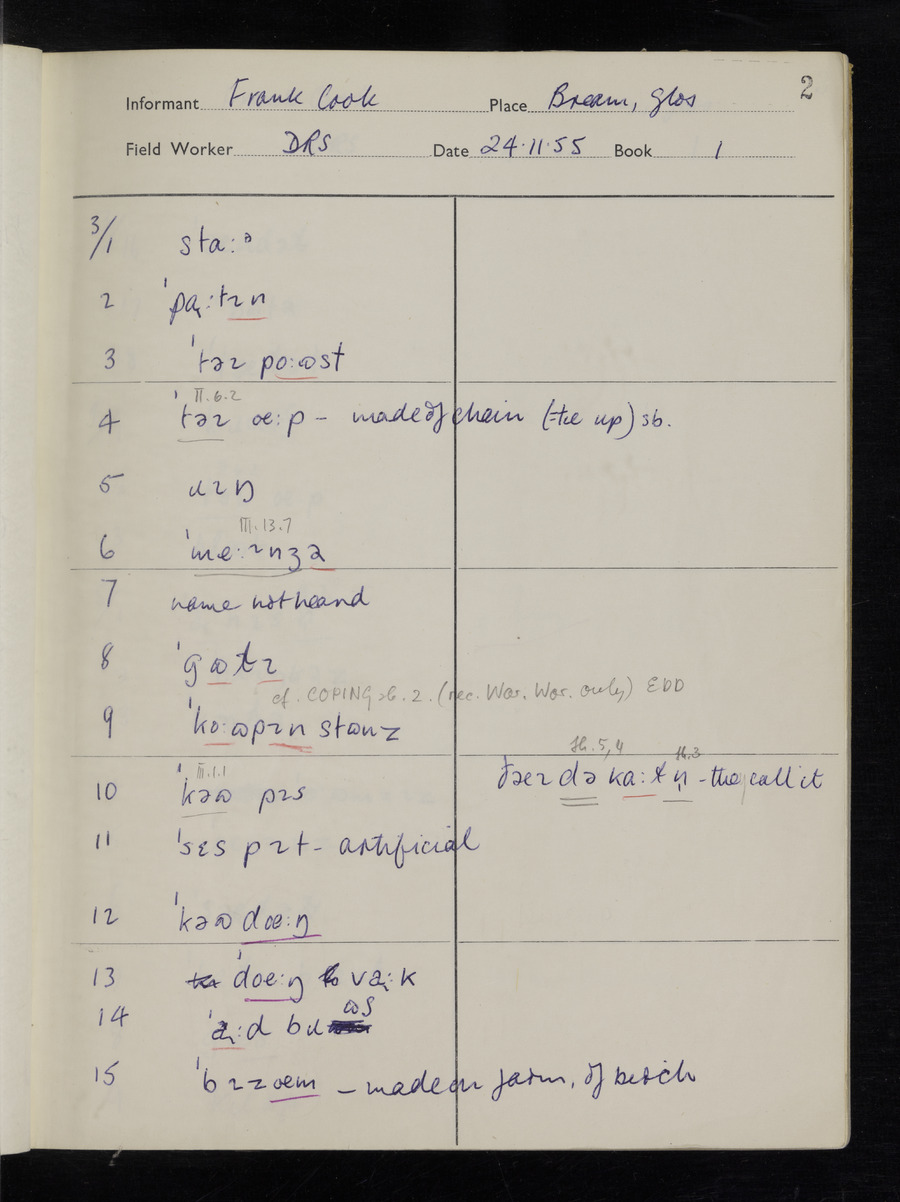 2
Informant Frank Cook Place Bream, Glos
Field Worker DRS Date 24.11.55 Book 1
3/1 sta:ᵊ
2 ˈpɑ̨:tɪn
3 ˈtəɪ po:ɷst
II.6.2
4 ˈtəɪ œ:p – made of chain (tie up) sb.
5 ɹɪŋ
III.13.7
6 ˈme:ɪnʒə
7 name not heard
8 ˈgɷtɪ
cf. COPING sb. 2. (rec. War. Wor. only) EDD
9 ˈko:ɷpɪn stɷnz
III.1.1
10 ˈkəɷ pɪs
sh. 5,4 sh.3
ðəɪ də ka:ɫ n̩ – they call it
11 ˈsɛs pɪt – artificial
12 ˈkəɷ dœ:ŋ
13 ˈdœ:ŋ va̜:k
14 ˈɑ̨:d bɹɷʃ
15 ˈbɪzœm – made on farm, of birch